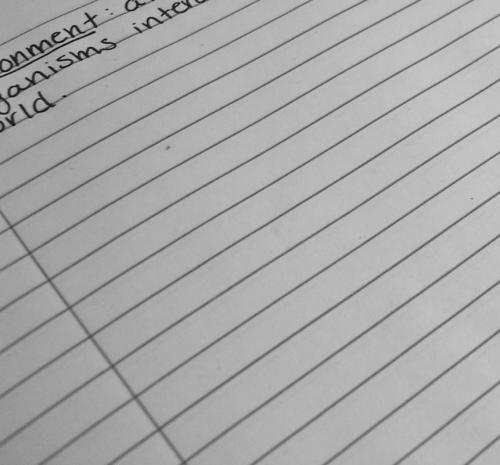 onment: a
ganisms inter
orld.